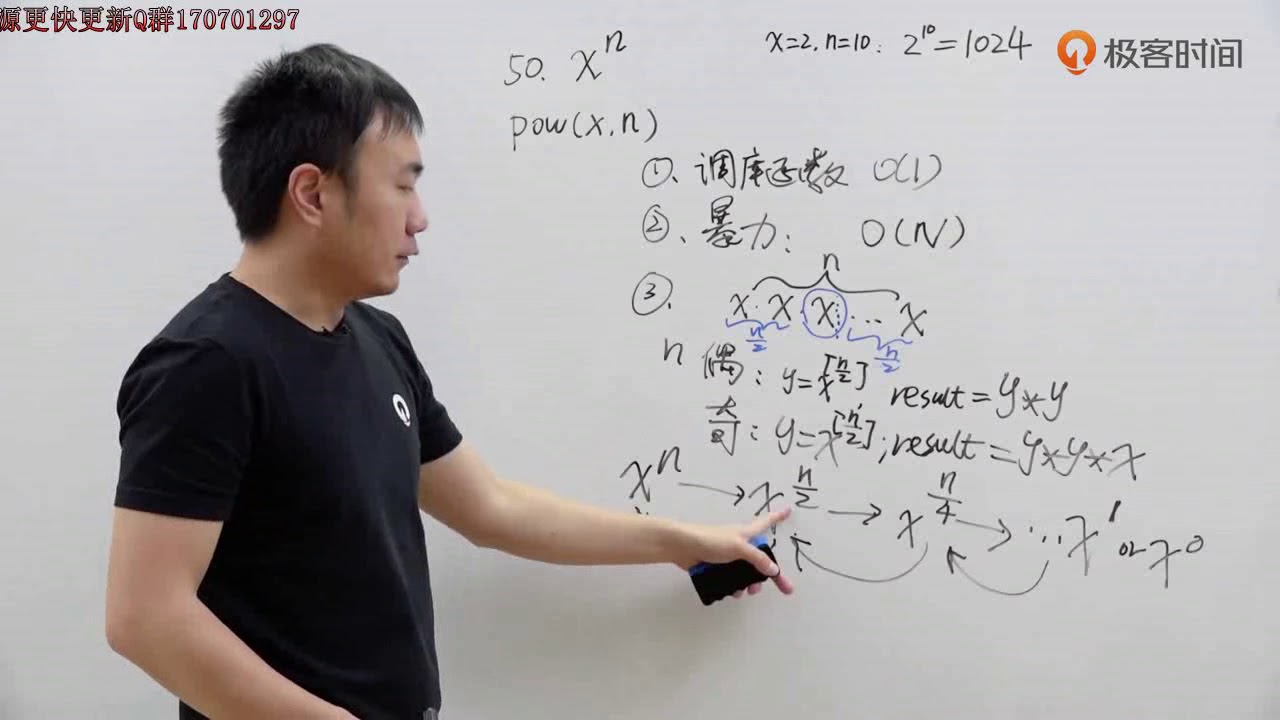 源更快更新Q群170701297
极客时间
50. xⁿ
x=2, n=10: 2¹⁰=1024
pow(x,n)
①、调库函数 O(1)
②、暴力: O(N)
③.
n
x·x·x…x
n/2 n/2
n 偶: y=x^[n/2] result=y*y
奇: y=x^[n/2]; result=y*y*x
xⁿ → x^(n/2) → x^(n/4) → …x¹ or x⁰